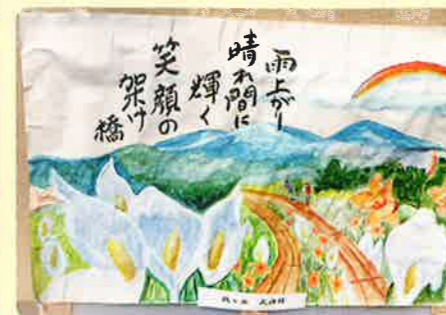 雨上がり
晴れ間に
輝く
笑顔の
架け
橋